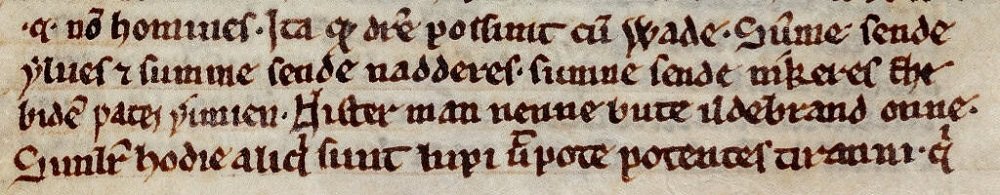 ·q· nō homines · Ita qͩ dic̄e possunt cū wade · Sūme sende
ẏlues ⁊ summe sende nadderes · sumne sende nikeres the
bidē pateȝ ẏinien · Nister man nenne bute ildebrand onne ·
Simlr̄ hodie aliqͥ sunt lupi ūpote potentes tiranni · qͥ